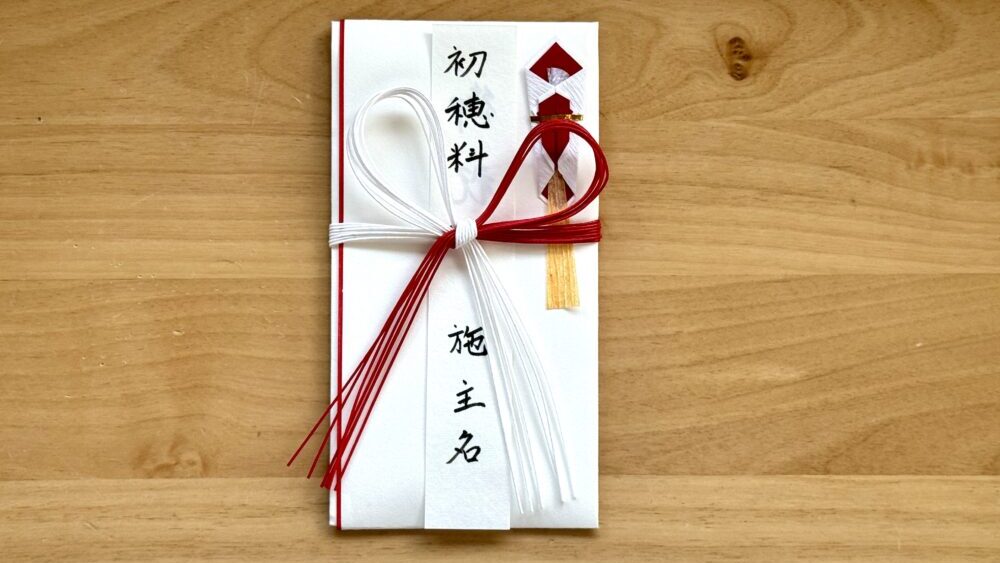 初穂料
施主名